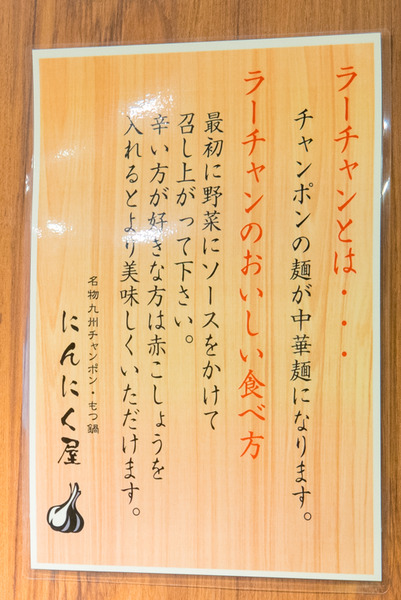 ラーチャンとは・・・
チャンポンの麺が中華麺になります。
ラーチャンのおいしい食べ方
最初に野菜にソースをかけて
召し上がって下さい。
辛い方が好きな方は赤こしょうを
入れるとより美味しくいただけます。
名物九州チャンポン・もつ鍋
にんにく屋